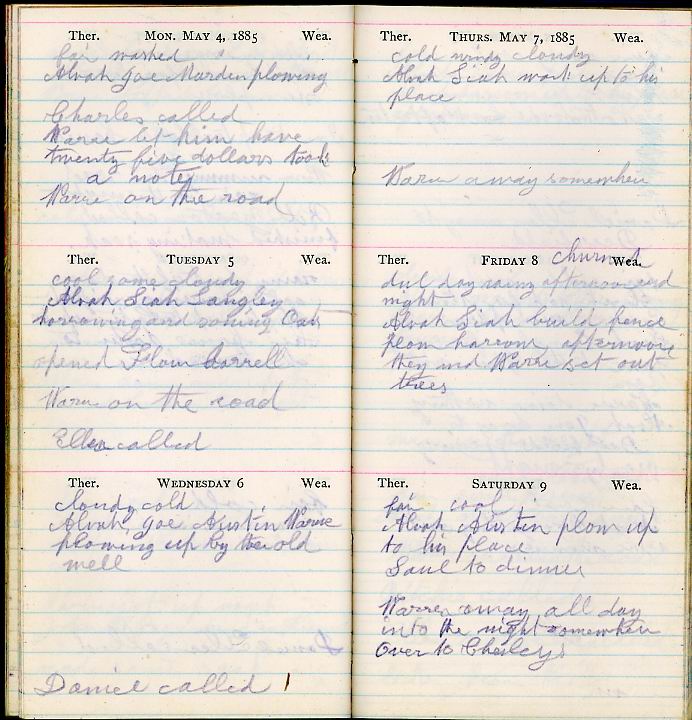 Ther. MON. MAY 4, 1885 Wea.
fair washed
Alvah Joe Marden plowing
Charles called
Warre let him have
twenty five dollars took
a note
Warre on the road
Ther. TUESDAY 5 Wea.
cool some cloudy
Alvah Siah Langley
harrowing and sowing Oats
opened Flour barrell
Warre on the road
Ellen called
Ther. WEDNESDAY 6 Wea.
cloudy cold
Alvah Joe Austin Warre
plowing up by the old
well
Daniel called
Ther. THURS. MAY 7, 1885 Wea.
cold windy cloudy
Alvah Siah work up to his
place
Warre away somewher
Ther. FRIDAY 8 Wea.
churned
dul day rainy afternoon and
night
Alvah Siah build fence
afternoon
they and Warre set out
trees
Ther. SATURDAY 9 Wea.
fair cool
Alvah Austin plow up
to his place
Saul to dinner
Warren away all day
into the night somewher
over to Chesleys